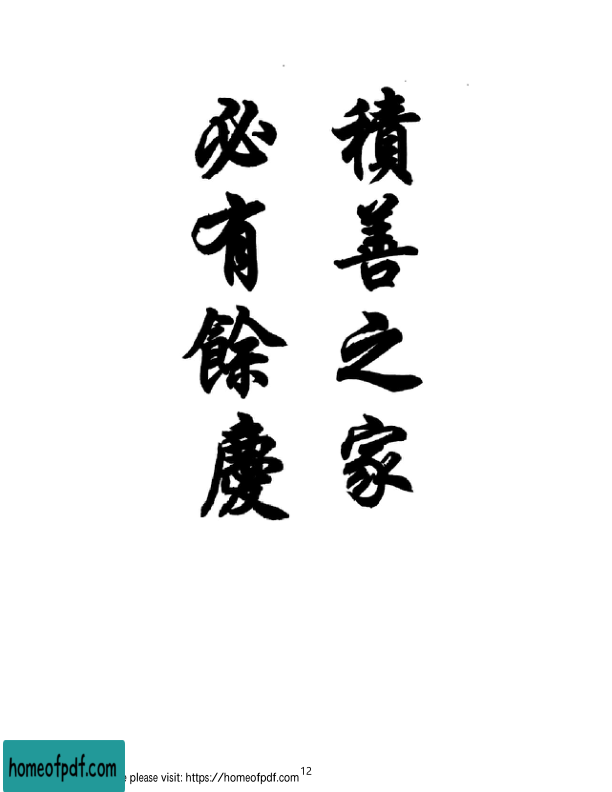 積善之家
必有餘慶
homeofpdf.com
please visit: https://homeofpdf.com
12